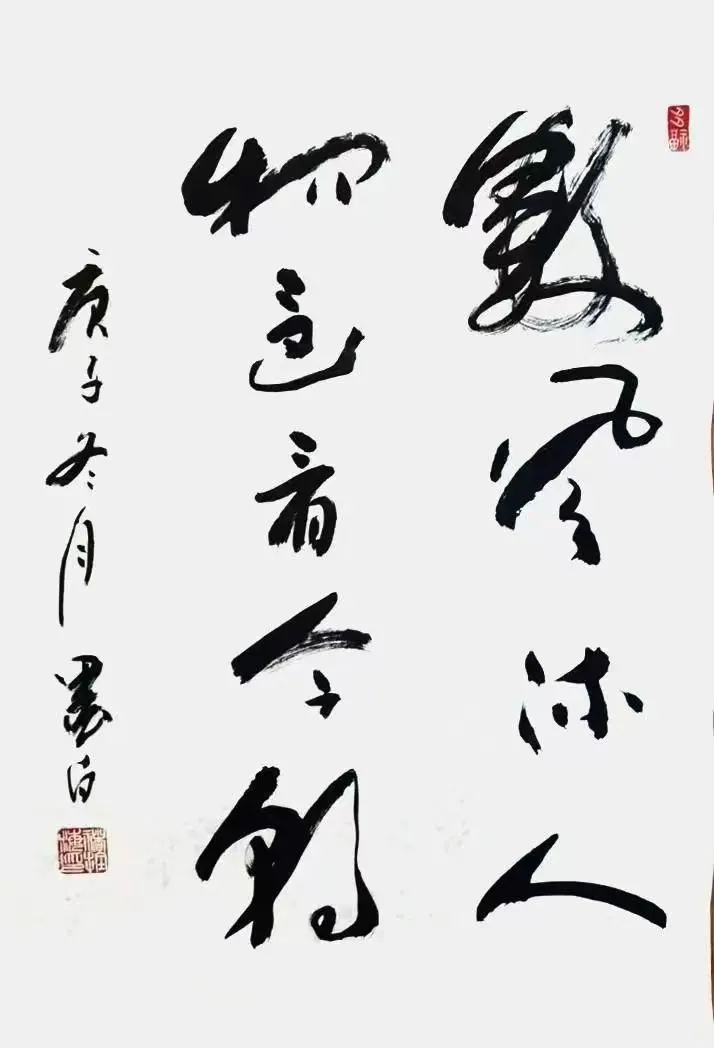 數風流人
物還看今朝
庚子冬月墨白